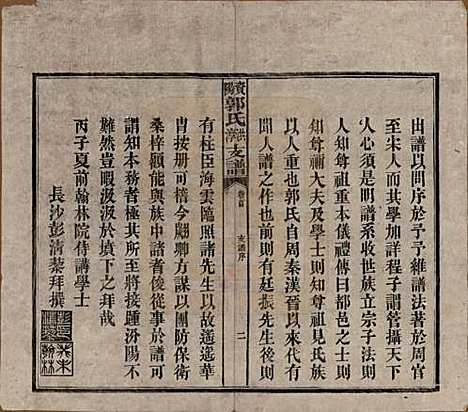 出譜以問序於予予維譜法著於周官
至宋人而其學加詳程子謂管攝天下
人心須是明譜系收世族立宗子法則
人知尊祖重本儀禮傳曰都邑之士則
知尊禰大夫及學士則知尊祖見氏族
以人重也郭氏自周秦漢晉以來代有
聞人譜之作也前則有廷振先生後則
郭氏支譜
卷首
支譜序
二
有柱臣海雲隨照諸先生以故遙遙華
胄按册可稽今又際方謀以團防保衛
桑梓顧能與族中諸者俊從事於譜可
謂知本務者極其所至將接踵汾陽不
難然豈暇汲汲於墳下之拜哉
丙子夏前翰林院侍講學士
長沙彭清藜拜撰